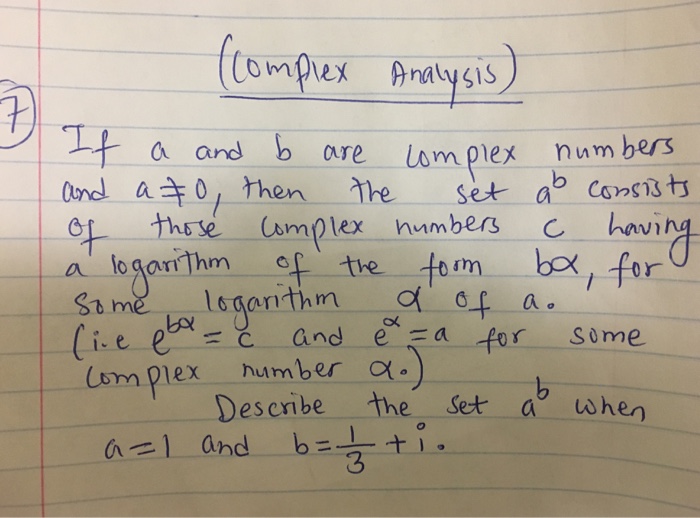 (Complex Analysis)
7
If a and b are complex numbers
and a ≠ 0, then the set a^b consists
of those complex numbers c having
a logarithm of the form bα, for
some logarithm α of a.
(i.e e^{bα} = c and e^α = a for some
complex number α.)
Describe the set a^b when
a = 1 and b = 1/3 + i.